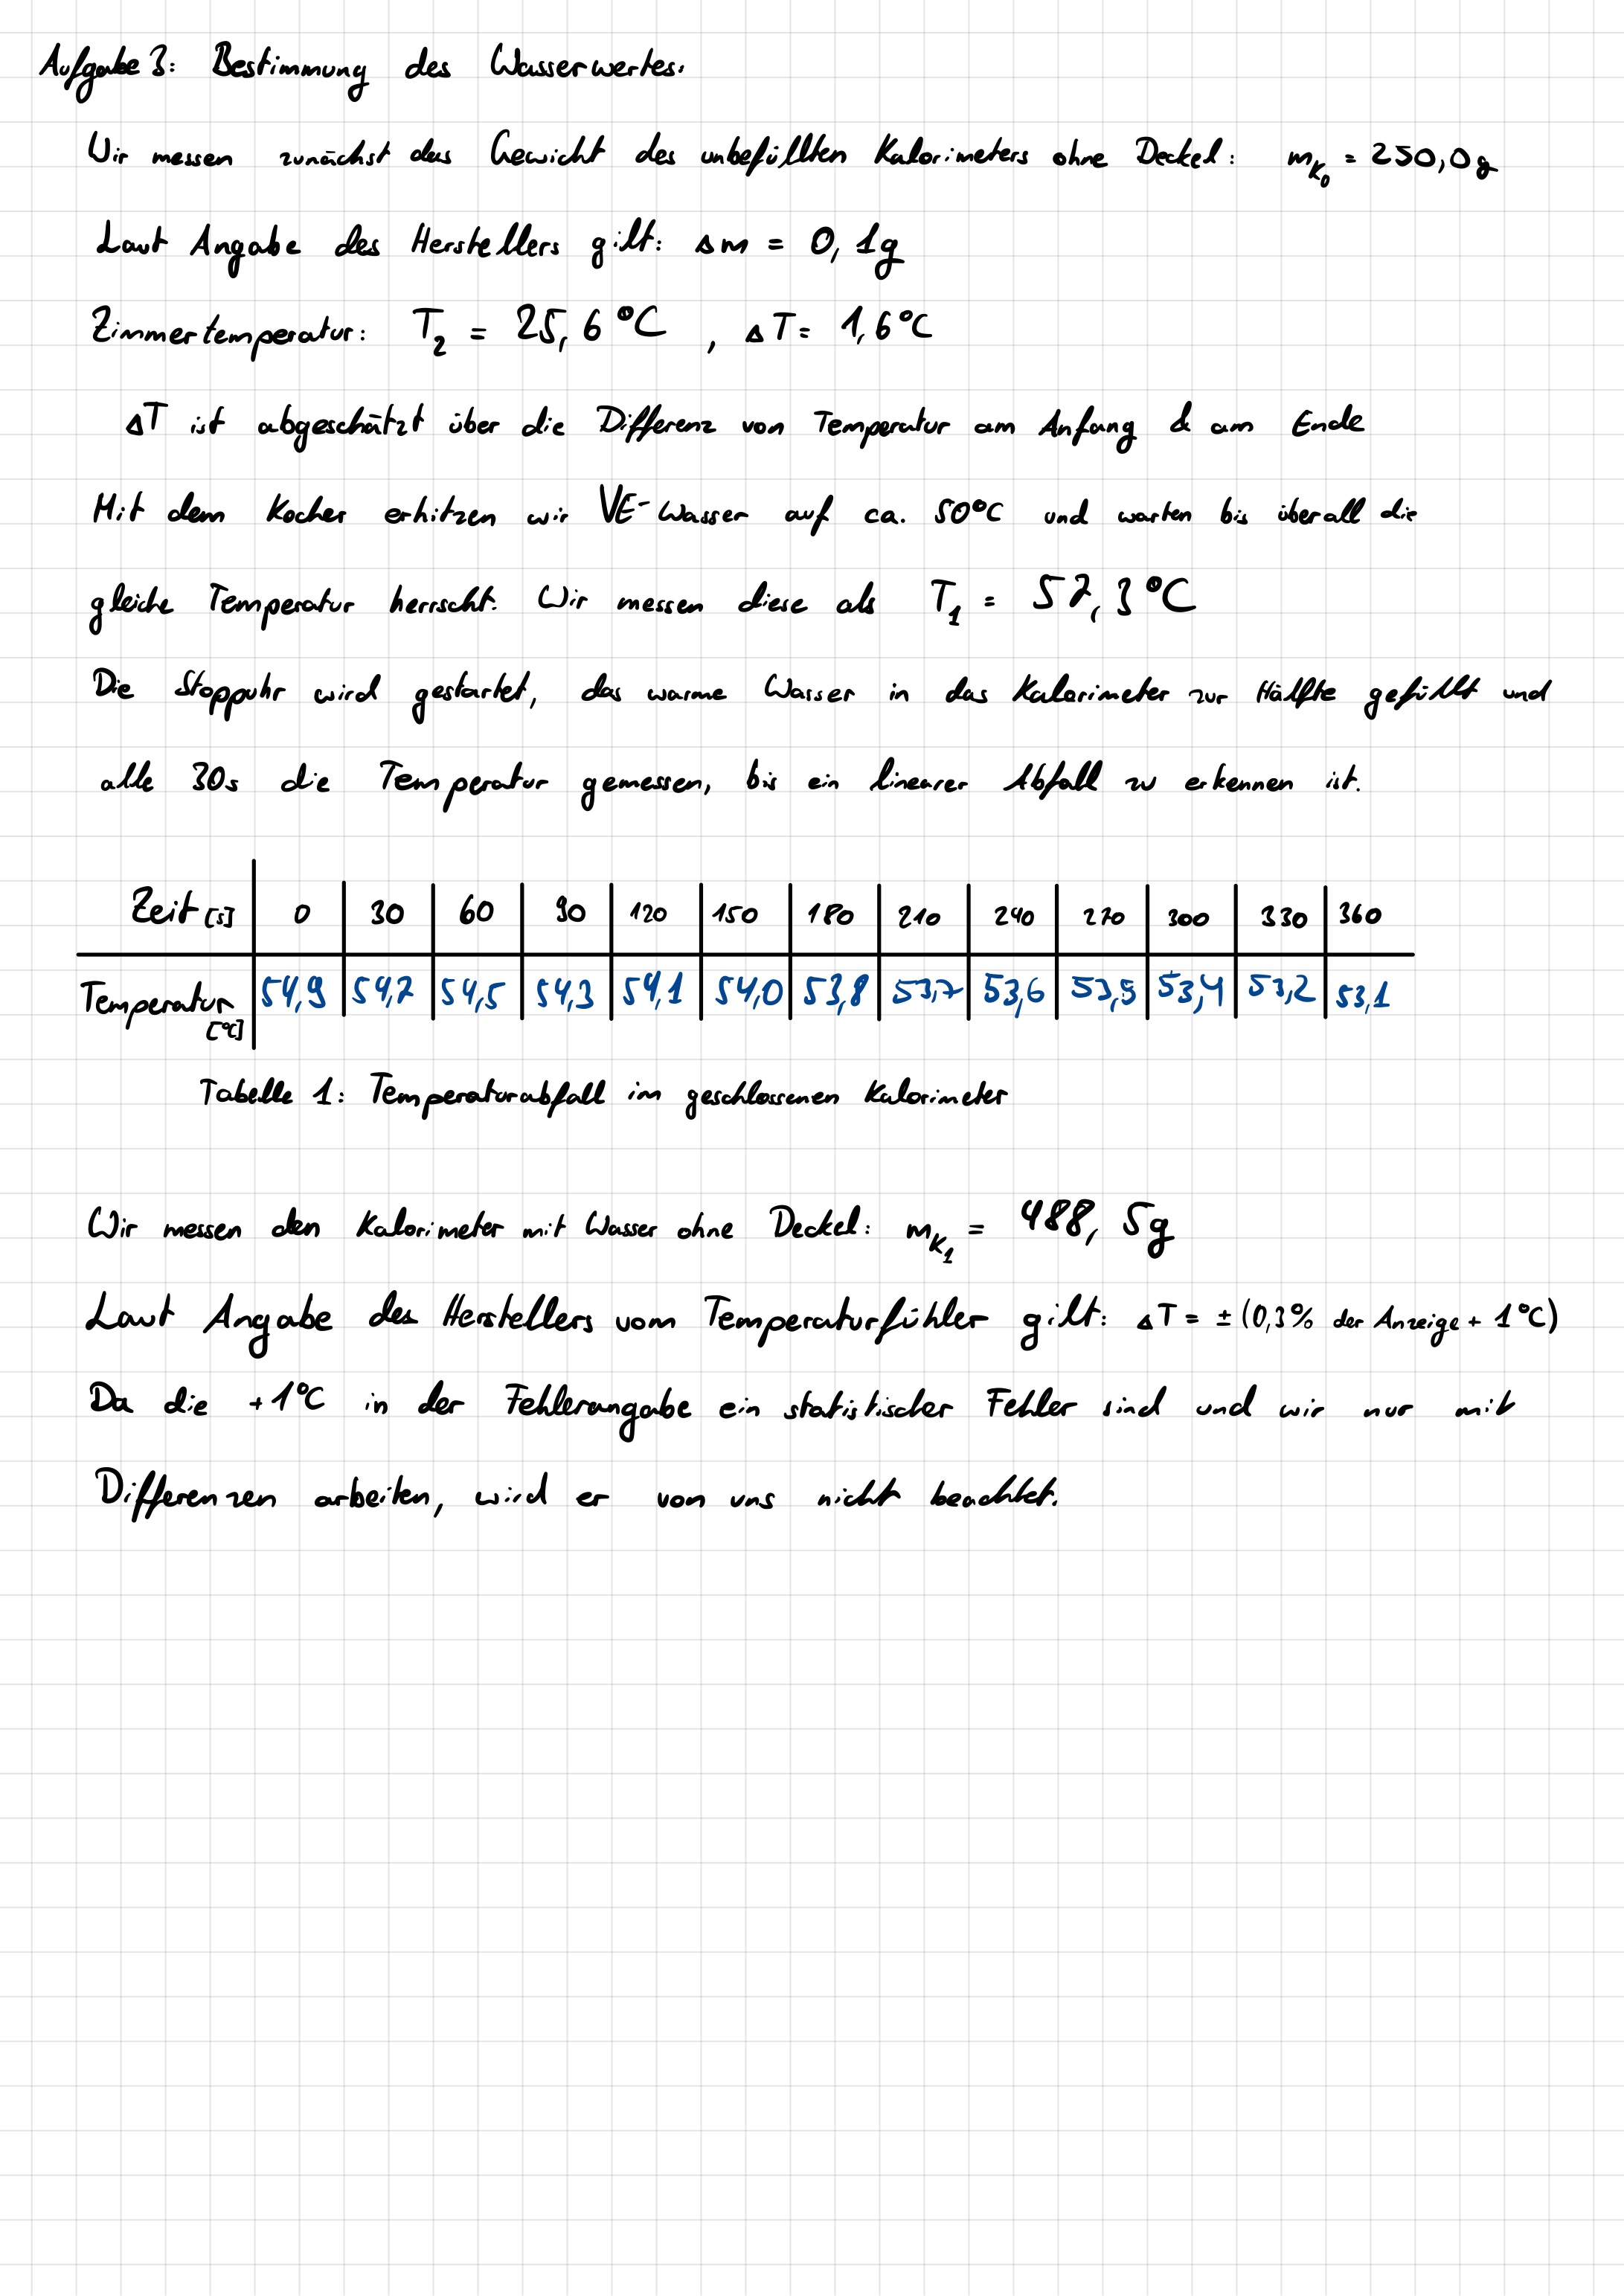 Aufgabe 3: Bestimmung des Wasserwertes.
Wir messen zunächst das Gewicht des unbefüllten Kalorimeters ohne Deckel: m_K₀ = 250,0g
Laut Angabe des Herstellers gilt: Δm = 0,1g
Zimmertemperatur: T₂ = 25,6 °C , ΔT = 1,6°C
ΔT ist abgeschätzt über die Differenz von Temperatur am Anfang & am Ende
Mit dem Kocher erhitzen wir VE-Wasser auf ca. 50°C und warten bis überall die
gleiche Temperatur herrscht. Wir messen diese als T₁ = 57,3°C
Die Stoppuhr wird gestartet, das warme Wasser in das Kalorimeter zur Hälfte gefüllt und
alle 30s die Temperatur gemessen, bis ein linearer Abfall zu erkennen ist.
Zeit [s] 0 30 60 90 120 150 180 210 240 270 300 330 360
Temperatur [°C] 54,9 54,7 54,5 54,3 54,1 54,0 53,8 53,7 53,6 53,5 53,4 53,2 53,1
Tabelle 1: Temperaturabfall im geschlossenen Kalorimeter
Wir messen den Kalorimeter mit Wasser ohne Deckel: m_K₁ = 488,5g
Laut Angabe des Herstellers vom Temperaturfühler gilt: ΔT = ± (0,3% der Anzeige + 1°C)
Da die +1°C in der Fehlerangabe ein statistischer Fehler sind und wir nur mit
Differenzen arbeiten, wird er von uns nicht beachtet.